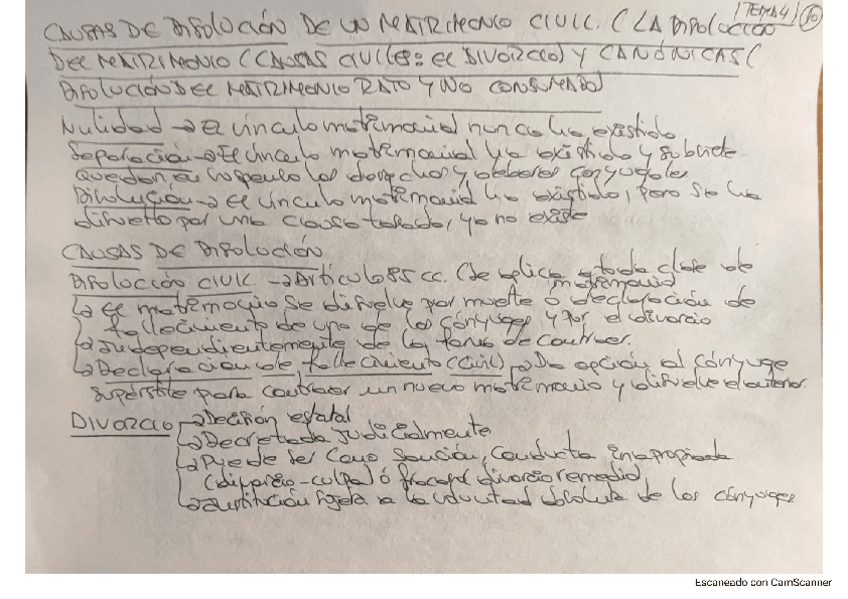 CAUSAS DE DISOLUCIÓN DE UN MATRIMONIO CIVIL. (LA DISOLUCIÓN
TEMA 4 10
DEL MATRIMONIO (CAUSAS CIVILES: EL DIVORCIO) Y CANÓNICAS (
DISOLUCIÓN DEL MATRIMONIO RATO Y NO CONSUMADO)
Nulidad → El vínculo matrimonial nunca ha existido
Separación → El vínculo matrimonial ha existido y subsiste
quedan en suspenso los derechos y deberes conyugales
Disolución → El vínculo matrimonial ha existido, pero se ha
disuelto por una causa tasada, ya no existe
CAUSAS DE DISOLUCIÓN
DISOLUCIÓN CIVIL → Artículo 85 cc. (Se aplica a toda clase de
matrimonio
↳ El matrimonio se disuelve por muerte o declaración de
fallecimiento de uno de los cónyuges y por el divorcio
↳ Independientemente de la forma de contraer.
↳ Declaración de fallecimiento (civil) → Da opción al cónyuge
supérstite para contraer un nuevo matrimonio y disuelve el anterior.
DIVORCIO → Decisión estatal
→ Decretada judicialmente
→ Puede ser como sanción, conducta inapropiada
(divorcio-culpa) ó fracaso (divorcio remedio)
→ Institución sujeta a la voluntad absoluta de los cónyuges
Escaneado con CamScanner